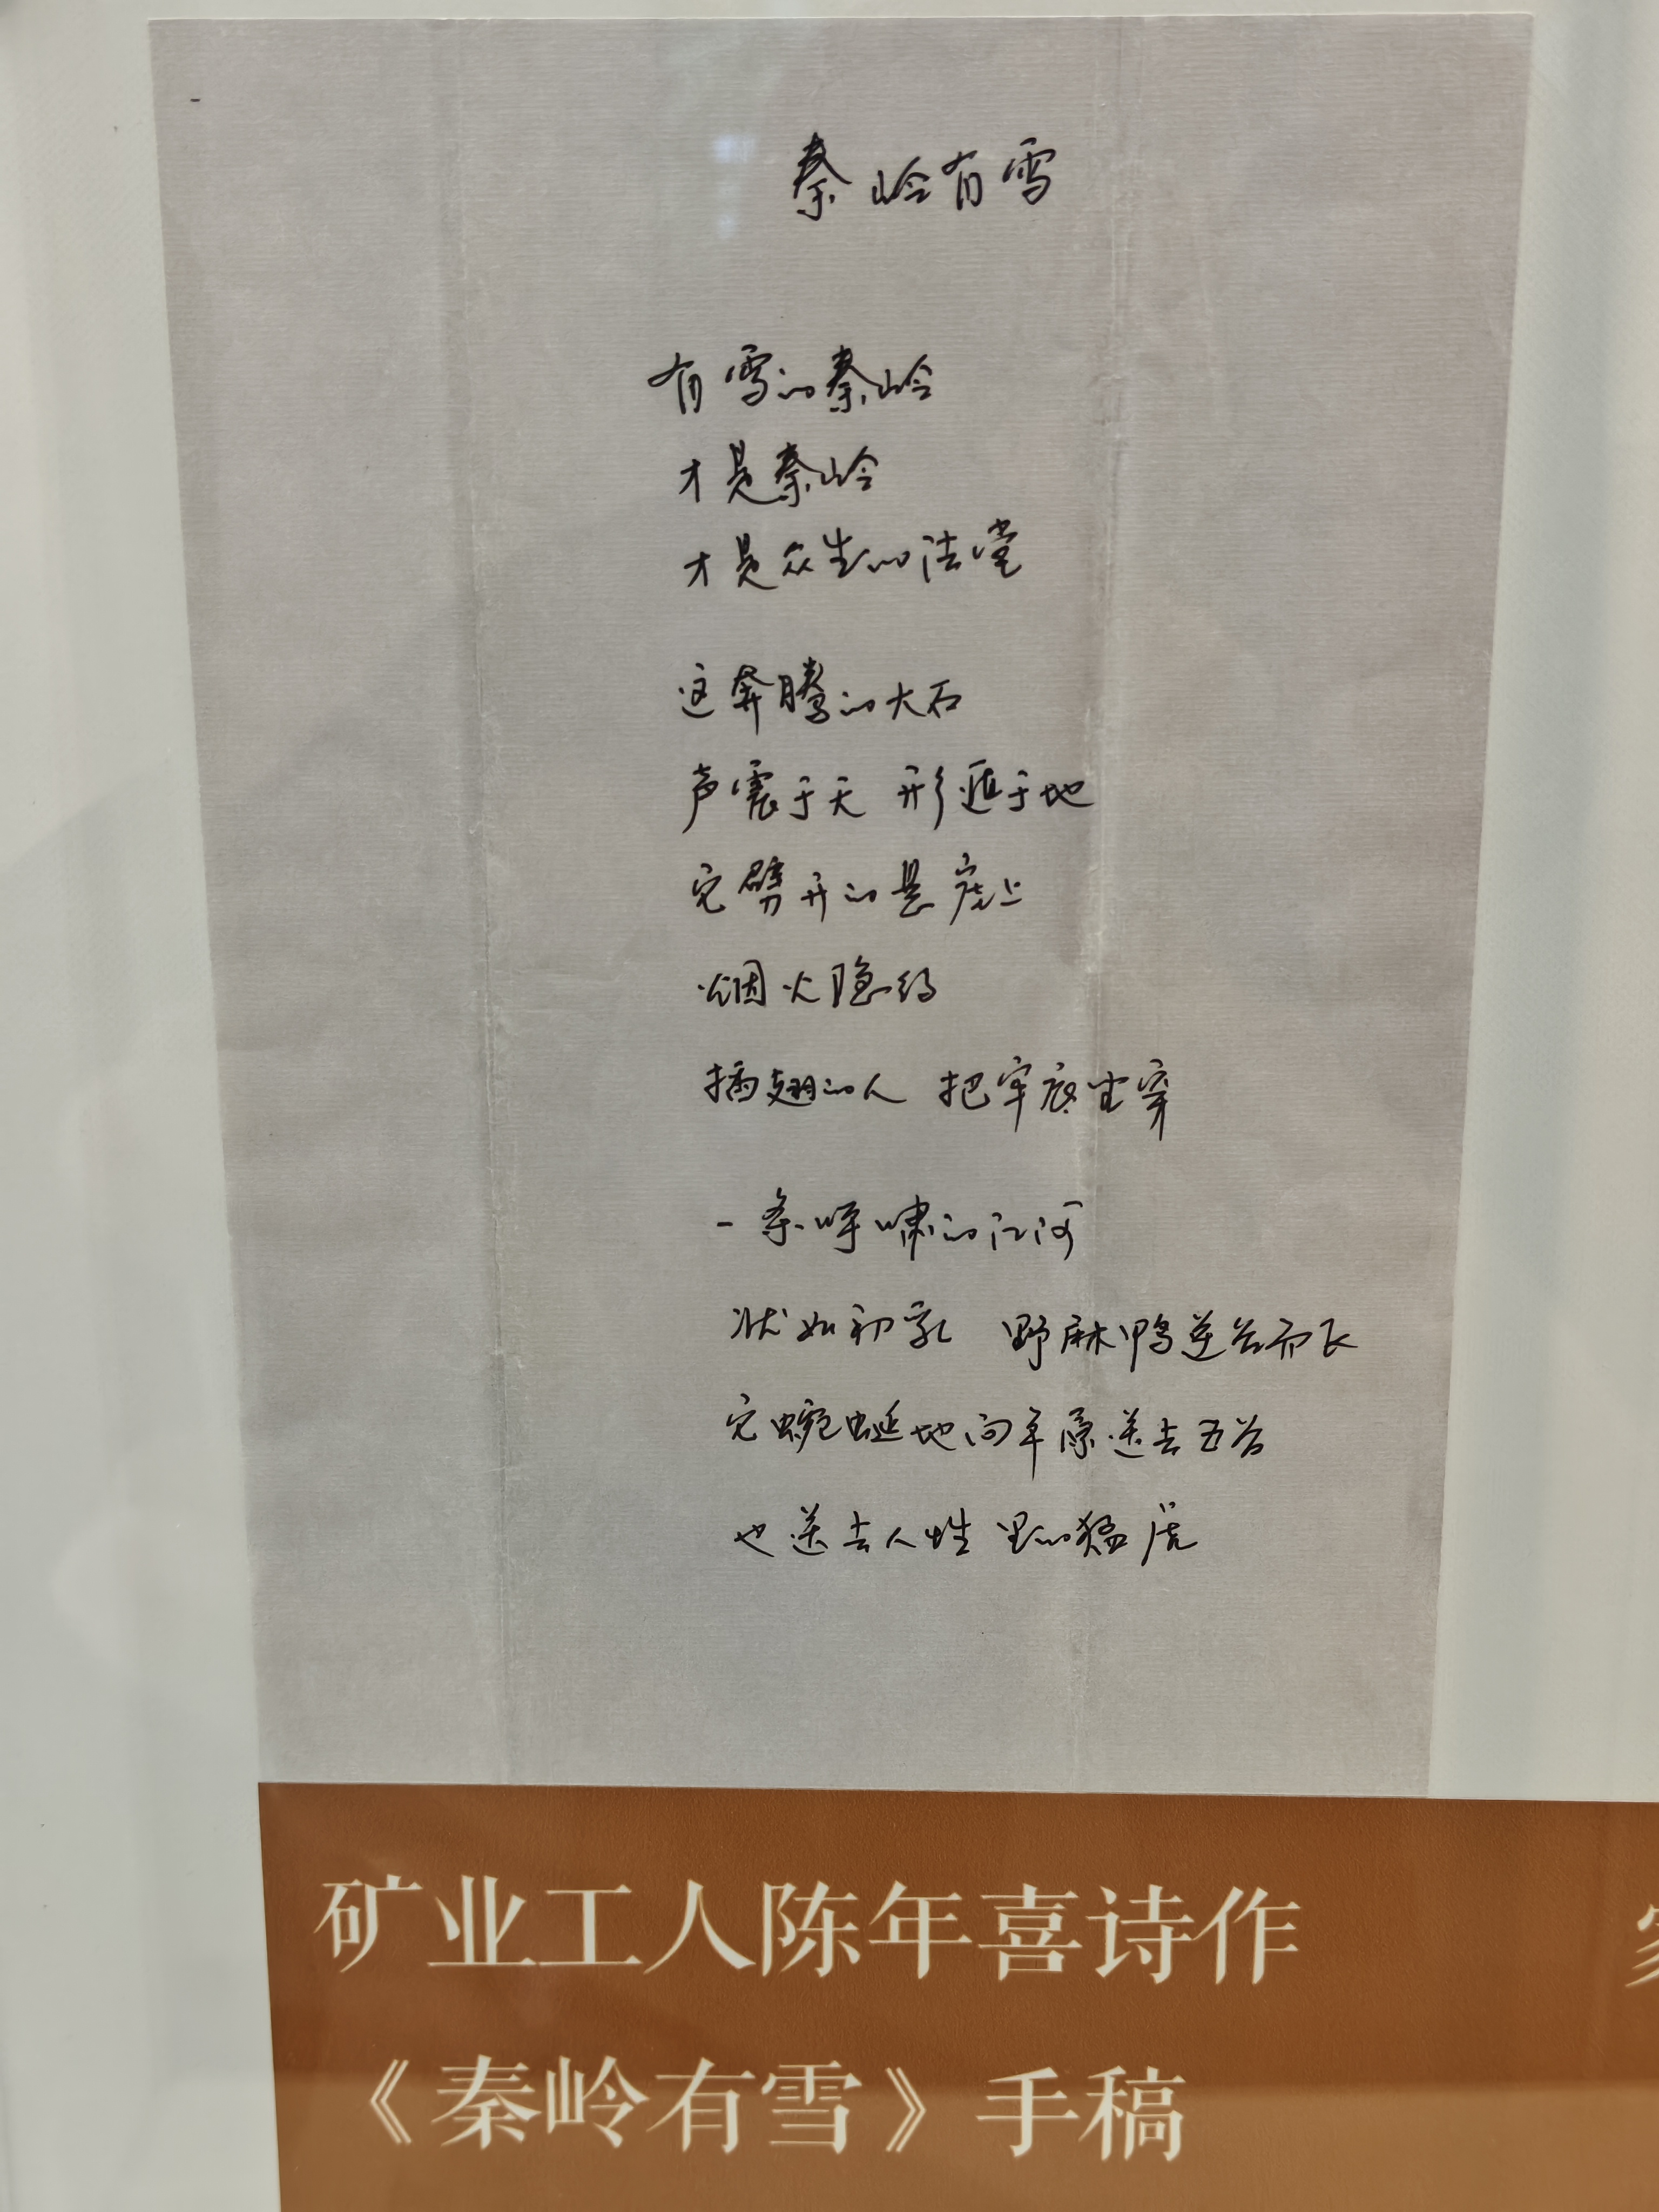 秦岭有雪
有雪的秦岭
才是秦岭
才是众生的法堂
这奔腾的大石
声震于天 形遁于地
它劈开的悬崖上
烟火隐约
插翅的人 把牢底坐穿
一条呼啸的江河
状如初乳 野麻鸭逆谷而飞
它蜿蜒地向平原送去五谷
也送去人性里的猛虎
矿业工人陈年喜诗作
《秦岭有雪》手稿